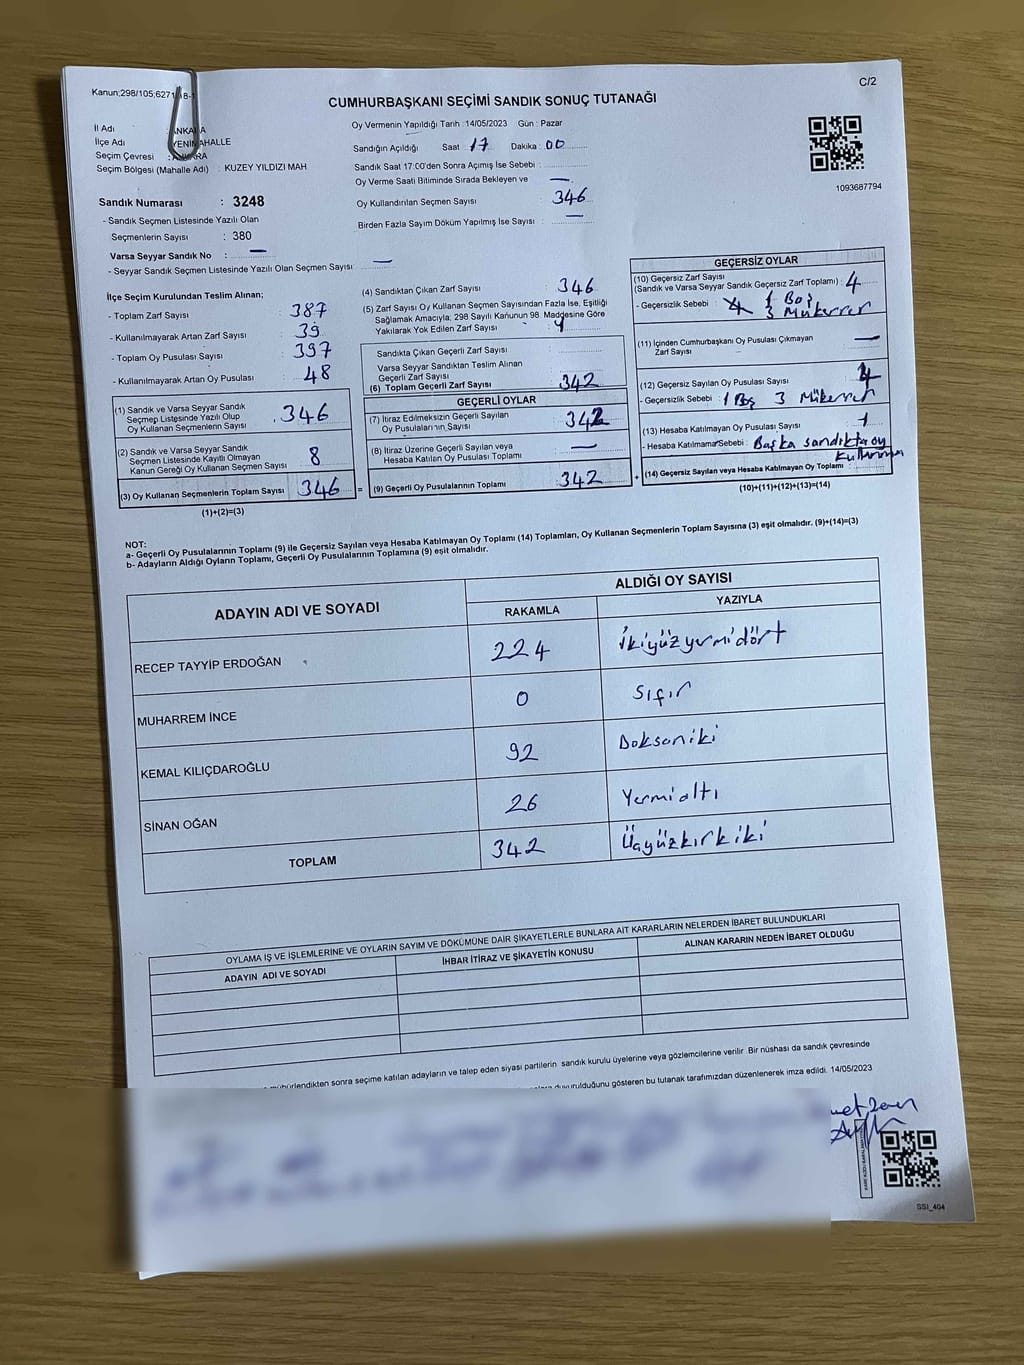 Kanun;298/105;6271
C/2
CUMHURBAŞKANI SEÇİMİ SANDIK SONUÇ TUTANAĞI
İl Adı : ANKARA
İlçe Adı YENİMAHALLE
Seçim Çevresi : ANKARA
Seçim Bölgesi (Mahalle Adı) : KUZEY YILDIZI MAH
Sandık Numarası : 3248
- Sandık Seçmen Listesinde Yazılı Olan
Seçmenlerin Sayısı : 380
Varsa Seyyar Sandık No : —
- Seyyar Sandık Seçmen Listesinde Yazılı Olan Seçmen Sayısı —
Oy Vermenin Yapıldığı Tarih :14/05/2023 Gün : Pazar
Sandığın Açıldığı Saat 17 Dakika : 00
Sandık Saat 17:00'den Sonra Açımış İse Sebebi :
Oy Verme Saati Bitiminde Sırada Bekleyen ve —
Oy Kullandırılan Seçmen Sayısı 346
Birden Fazla Sayım Döküm Yapılmış İse Sayısı : —
1093687794
İlçe Seçim Kurulundan Teslim Alınan;
- Toplam Zarf Sayısı : 387
- Kullanılmayarak Artan Zarf Sayısı : 39
- Toplam Oy Pusulası Sayısı : 397
- Kullanılmayarak Artan Oy Pusulası : 48
(1) Sandık ve Varsa Seyyar Sandık
Seçmen Listesinde Yazılı Olup
Oy Kullanan Seçmenlerin Sayısı : 346
(2) Sandık ve Varsa Seyyar Sandık
Seçmen Listesinde Kayıtlı Olmayan
Kanun Gereği Oy Kullanan Seçmen Sayısı 8
(3) Oy Kullanan Seçmenlerin Toplam Sayısı 346 =
(1)+(2)=(3)
(4) Sandıktan Çıkan Zarf Sayısı : 346
(5) Zarf Sayısı Oy Kullanan Seçmen Sayısından Fazla İse, Eşitliği
Sağlamak Amacıyla; 298 Sayılı Kanunun 98. Maddesine Göre
Yakılarak Yok Edilen Zarf Sayısı :
Sandıkta Çıkan Geçerli Zarf Sayısı :
Varsa Seyyar Sandıktan Teslim Alınan
Geçerli Zarf Sayısı
(6) Toplam Geçerli Zarf Sayısı : 342
GEÇERLİ OYLAR
(7) İtiraz Edilmeksizin Geçerli Sayılan
Oy Pusulalarının Sayısı : 342
(8) İtiraz Üzerine Geçerli Sayılan veya
Hesaba Katılan Oy Pusulası Toplamı : —
(9) Geçerli Oy Pusulalarının Toplamı : 342 +
GEÇERSİZ OYLAR
(10) Geçersiz Zarf Sayısı
(Sandık ve Varsa Seyyar Sandık Geçersiz Zarf Toplamı) : 4
- Geçersizlik Sebebi : 1 Boş
3 Mükerrer
(11) İçinden Cumhurbaşkanı Oy Pusulası Çıkmayan
Zarf Sayısı —
(12) Geçersiz Sayılan Oy Pusulası Sayısı : 4
- Geçersizlik Sebebi : 1 Boş 3 Mükerrer
(13) Hesaba Katılmayan Oy Pusulası Sayısı : 1
- Hesaba Katılmama Sebebi : Başka sandıkta oy
(14) Geçersiz Sayılan veya Hesaba Katılmayan Oy Toplamı :
(10)+(11)+(12)+(13)=(14)
NOT:
a- Geçerli Oy Pusulalarının Toplamı (9) ile Geçersiz Sayılan veya Hesaba Katılmayan Oy Toplamı (14) Toplamları, Oy Kullanan Seçmenlerin Toplam Sayısına (3) eşit olmalıdır. (9)+(14)=(3)
b- Adayların Aldığı Oyların Toplamı, Geçerli Oy Pusulalarının Toplamına (9) eşit olmalıdır.
ADAYIN ADI VE SOYADI
ALDIĞI OY SAYISI
RAKAMLA YAZIYLA
RECEP TAYYİP ERDOĞAN 224 İkiyüzyermidört
MUHARREM İNCE 0 Sıfır
KEMAL KILIÇDAROĞLU 92 Doksaniki
SİNAN OĞAN 26 Yermialtı
TOPLAM 342 Üçyüzkırkiki
OYLAMA İŞ VE İŞLEMLERİNE VE OYLARIN SAYIM VE DÖKÜMÜNE DAİR ŞİKAYETLERLE BUNLARA AİT KARARLARIN NELERDEN İBARET BULUNDUKLARI
ADAYIN ADI VE SOYADI İHBAR İTİRAZ VE ŞİKAYETİN KONUSU ALINAN KARARIN NEDEN İBARET OLDUĞU
mühürlendikten sonra seçime katılan adayların ve talep eden siyasi partilerin sandık kurulu üyelerine veya gözlemcilerine verilir. Bir nüshası da sandık çevresinde
duyurulduğunu gösteren bu tutanak tarafımızdan düzenlenerek imza edildi. 14/05/2023
SSI_404